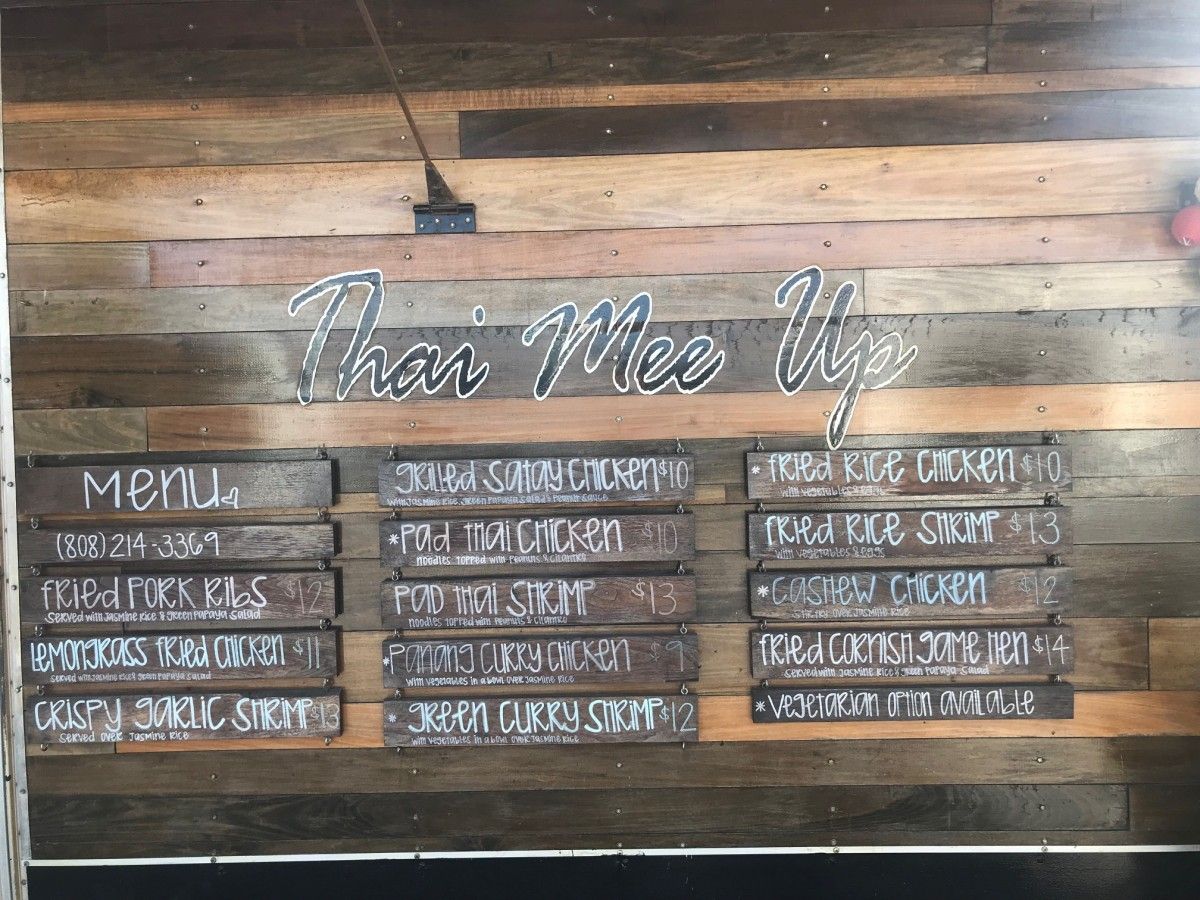 Thai Mee Up
Menu
(808) 214-3369
Fried Pork Ribs $12
Served with Jasmine Rice & Green Papaya Salad
Lemongrass Fried Chicken $11
Served with Jasmine Rice & Green Papaya Salad
Crispy Garlic Shrimp $13
Served over Jasmine Rice
Grilled Satay Chicken $10
with Jasmine Rice, Green Papaya Salad & Peanut Sauce
*Pad Thai Chicken $10
Noodles topped with Peanuts & Cilantro
Pad Thai Shrimp $13
Noodles topped with Peanuts & Cilantro
*Panang Curry Chicken $9
with vegetables in a bowl over Jasmine Rice
*Green Curry Shrimp $12
with vegetables in a bowl over Jasmine Rice
*Fried Rice Chicken $10
with vegetables & eggs
Fried Rice Shrimp $13
with vegetables & eggs
*Cashew Chicken $12
Stir fry over Jasmine Rice
Fried Cornish Game Hen $14
Served with Jasmine Rice & Green Papaya Salad
*Vegetarian option available